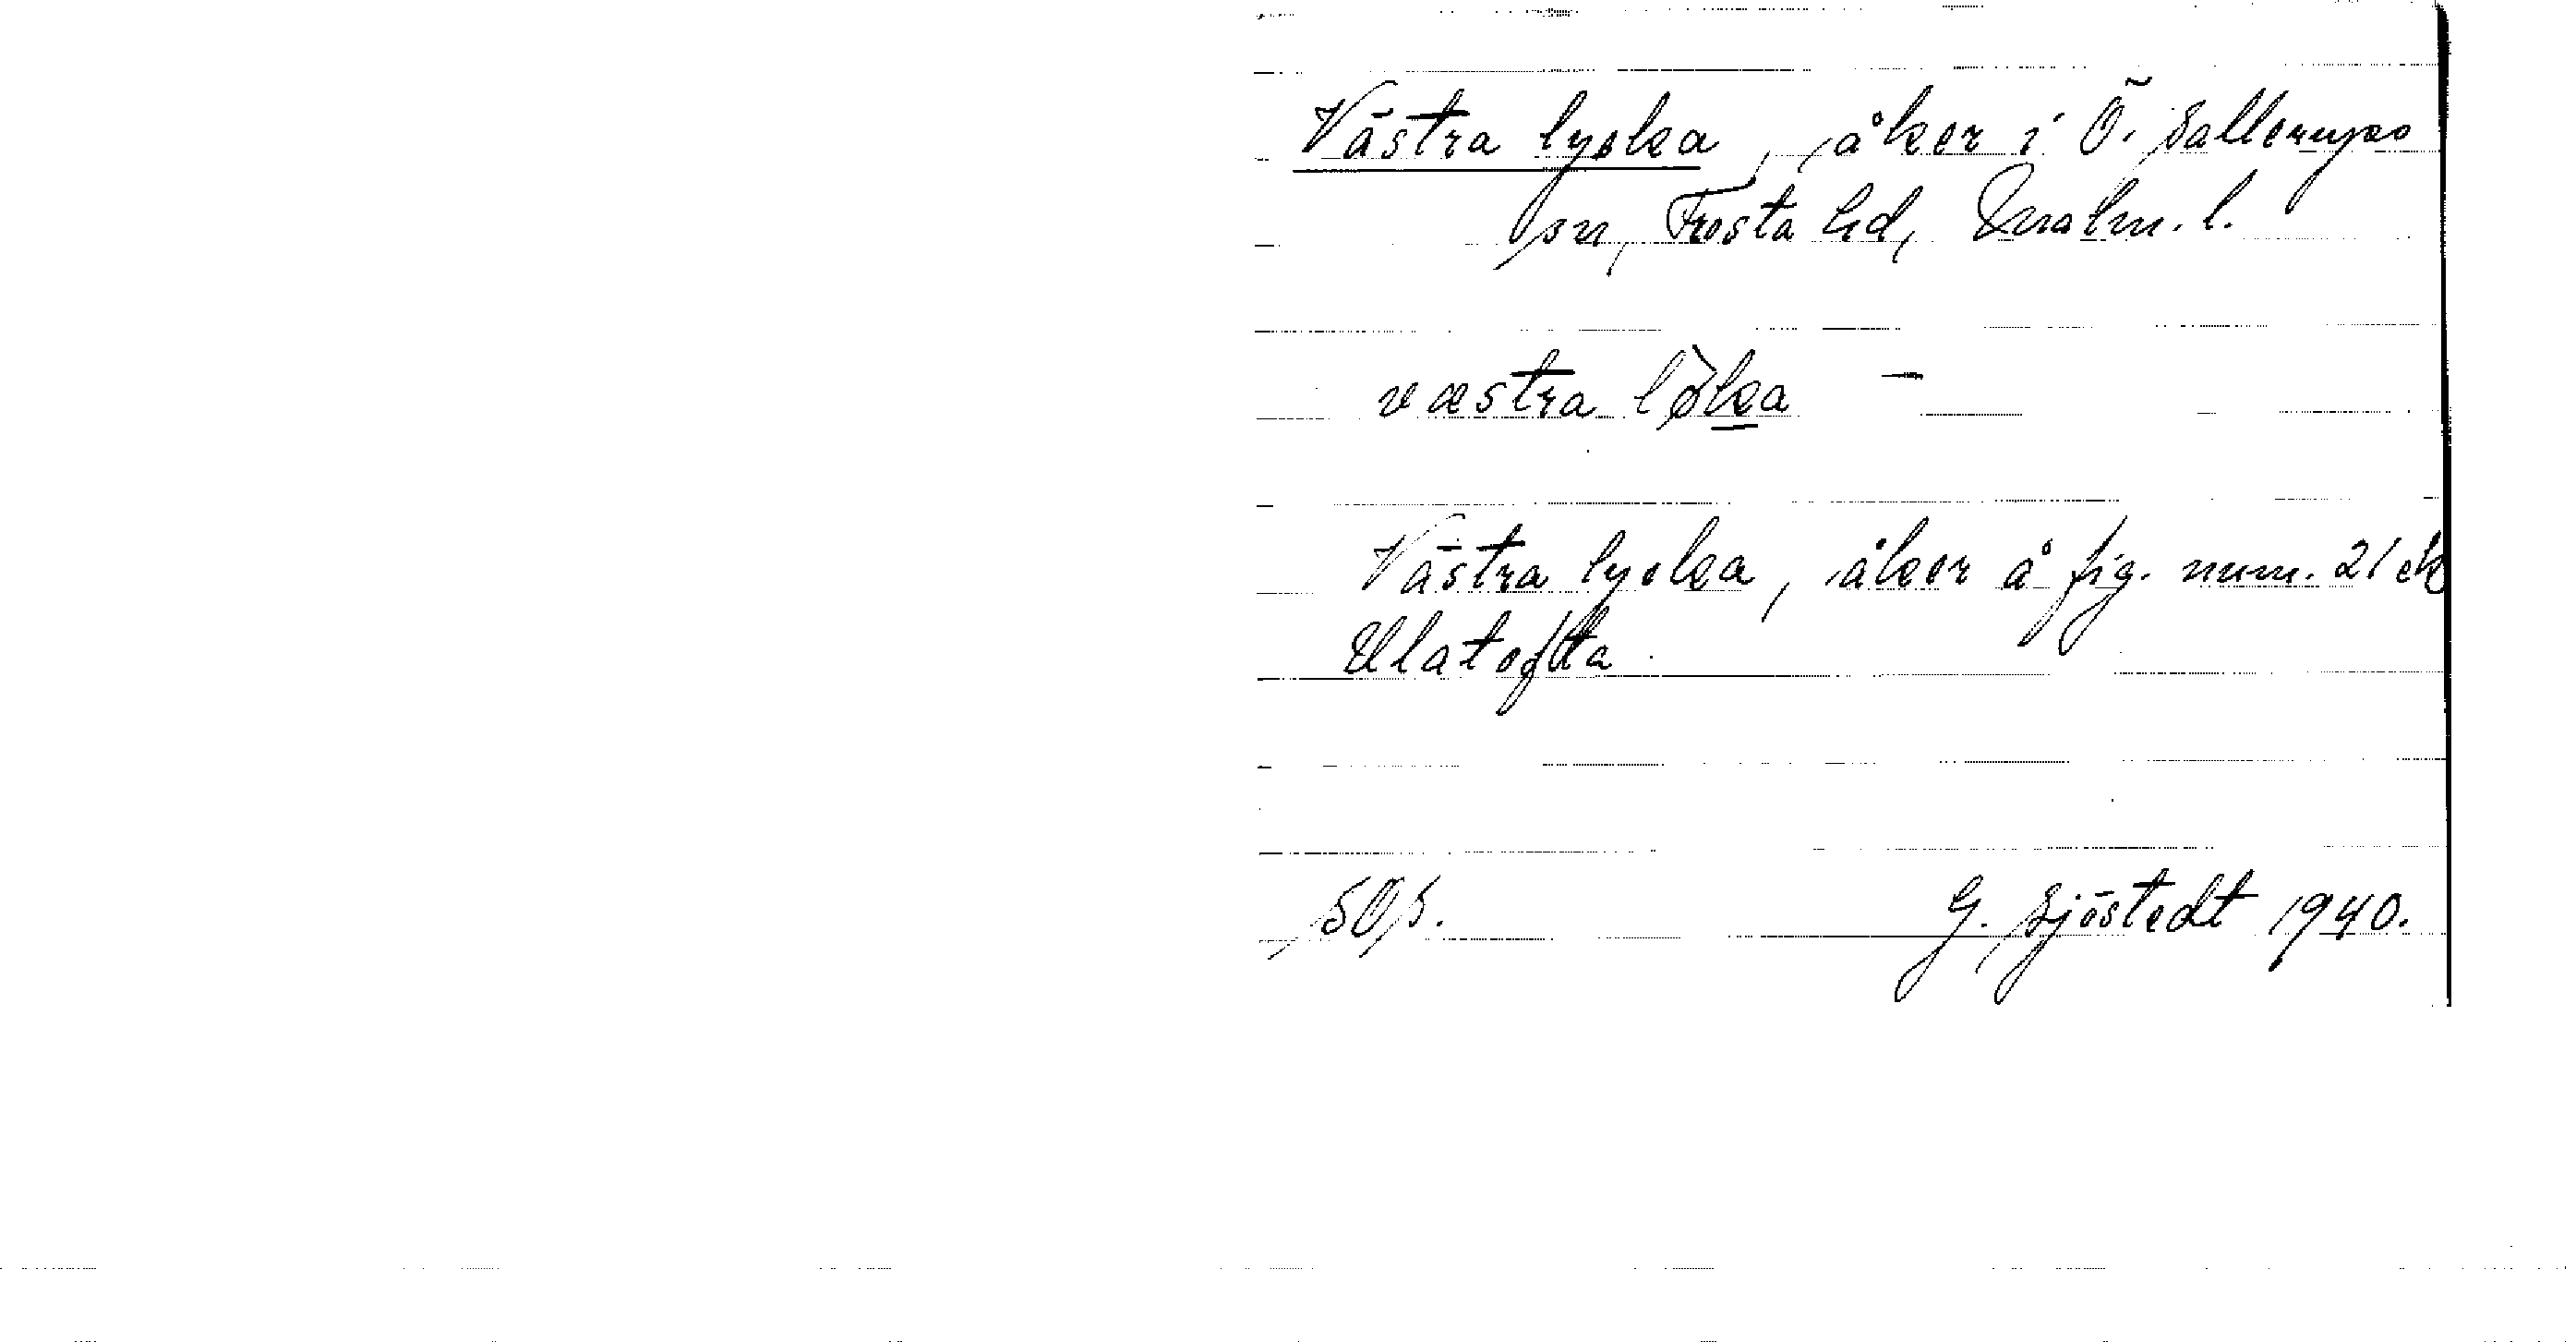 Västra lycka, åker i Ö. Sallerups
sn, Frosta hd, Malm. l.
væstra lỳka –
Västra lycka, åker å fig. num. 21 ek
Ulatofta
50, 5. G. Sjöstedt 1940.